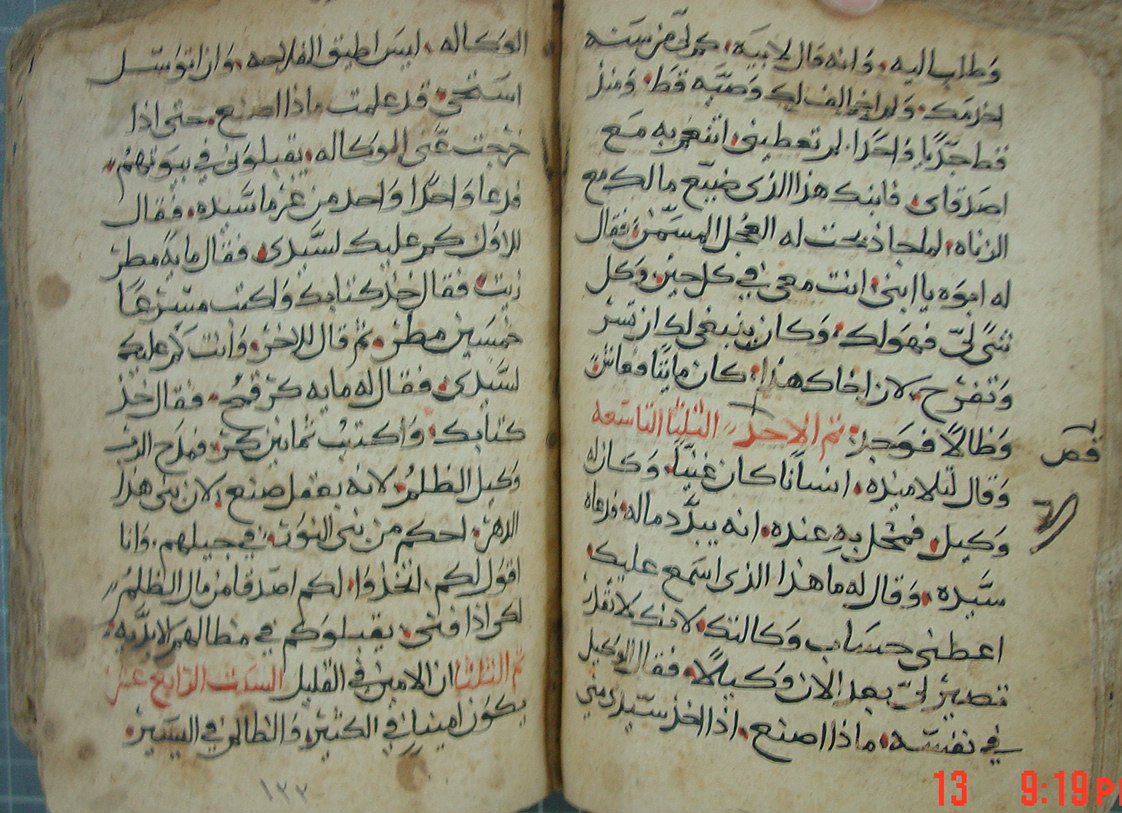 وطلب اليه، وانه قال لابيه، كم لي من سنه
اخدمك، ولم اخالف لك وصيه قط، ومنذ
قط جديا واحدا، لم تعطيني، اتنعم به مع
اصدقاي، فابنك هذا الذي ضيع مالك مع
الزناه، لما جا ذبحت له العجل المسمن، فقال
له ابوه يا ابني، انت معي في كل حين، وكل
شي لي فهو لك، وكان ينبغي لك ان تسر
وتفرح، لان اخاك هذا، كان مايتا فعاش
وظالا فوجد، تم الاحد، الثلثا التاسعه
وقال لتلاميذه، انسانا كان غنيا، وكان له
وكيل، فمحل به عنده، انه يبدد ماله، فدعاه
سيده، وقال له ما هذا الذي اسمع عليك،
اعطني حساب وكالتك، لانك لا تقدر
تصير لي بعد الان وكيلا، فقال الوكيل
في نفسه، ماذا اصنع، اذا اخذ سيدي مني
الوكاله، ليس اطيق الفلاحه، وان اتوسل
استحي، قد علمت ماذا اصنع، حتى اذا
خرجت عني الوكاله، يقبلوني في بيوتهم،
فدعا واحدا واحد من غرما سيده، فقال
للاول كم عليك لسيدي، فقال مايه مطر
زيت، فقال خذ كتابك واكتب مسرعا
خمسين مطر، ثم قال للاخر، وانت كم عليك
لسيدي، فقال له مايه كر قمح، فقال خذ
كتابك، واكتب ثمانين كر، فمدح الرب
وكيل الظلم، لانه بعقل صنع، لان بني هذا
الدهر، احكم من بني النور، في جيلهم، وانا
اقول لكم، اتخذوا، لكم اصدقا من مال الظلم،
لكي اذا فني، يقبلوكم في مظالهم الابديه،
تم الثلثا ان الامين في القليل السبت الرابع عشر
يكون امينا في الكثير، والظالم في اليسير،
١٢٢
13 9:19